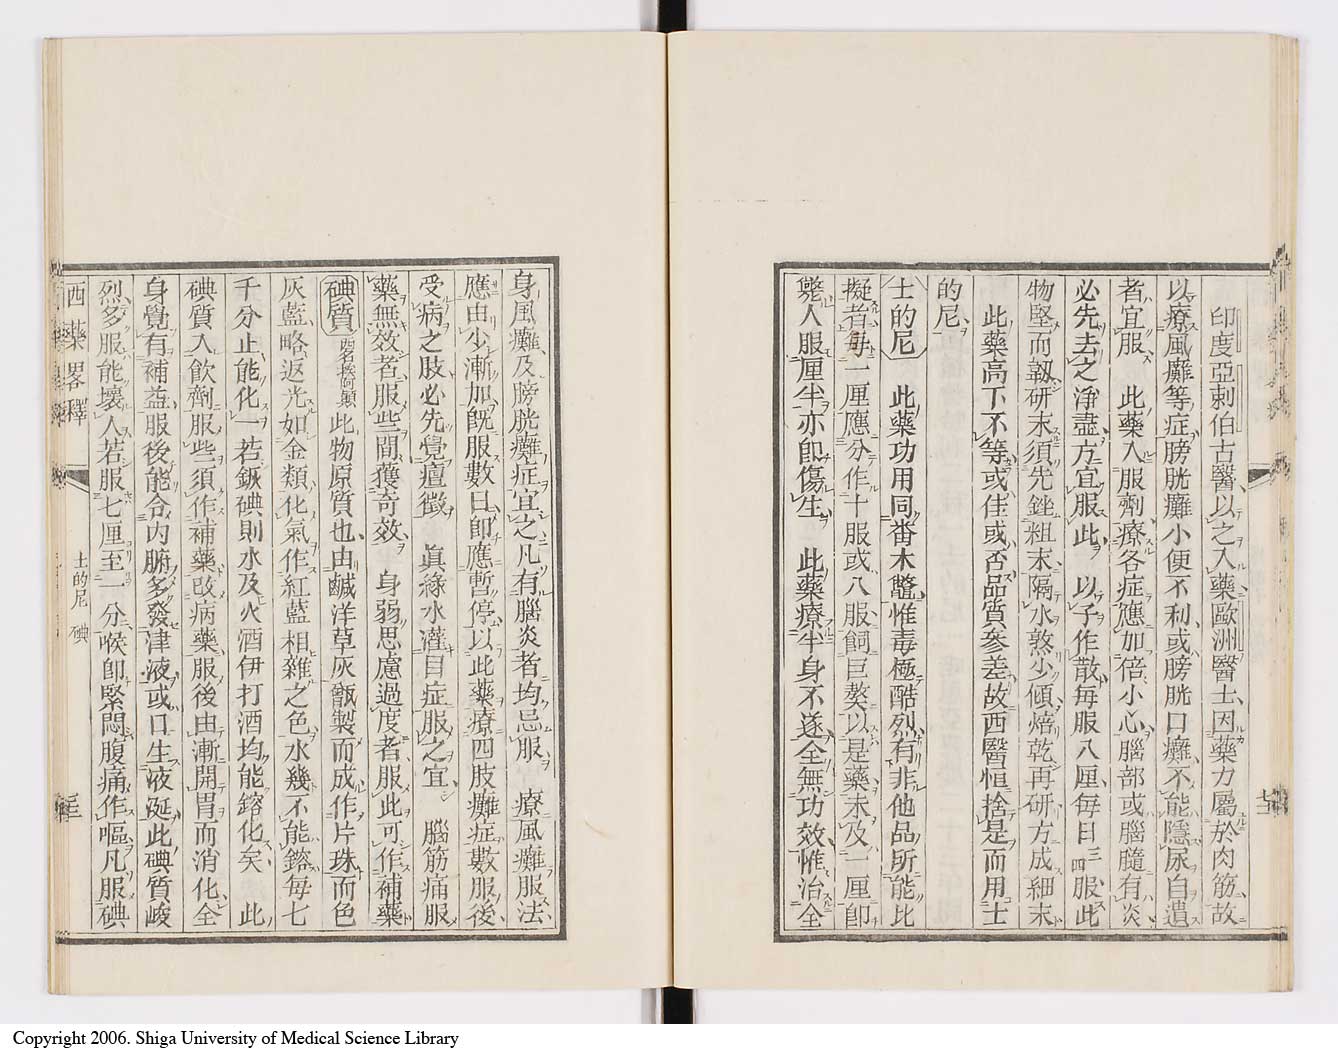 印度亞剌伯古醫以之入藥歐洲醫士因藥力屬於肉筋故
以療風癱等症膀胱癱小便不利或膀胱口癱不能隱尿自遺
者宜服　此藥入服劑療各症應加倍小心腦部或腦髓有炎
必先去之淨盡方宜服此　以子作散每服八厘每日三四服此
物堅而韌研末須先銼粗末隔水熬少傾焙乾再研方成細末
此藥高下不等或佳或否品質參差故西醫恒捨是而用士
的尼
士的尼　此藥功用同番木虌惟毒極酷烈有非他品所能比
擬者每一厘應分作十服或八服飼巨獒以是藥末及一厘卽
斃人服厘半亦卽傷生　此藥療半身不遂全無功效惟治全
身風癱及膀胱癱症宜之凡有腦炎者均忌服　療風癱服法
應由少漸加旣服數日卽應暫停以此藥療四肢癱症數服後
受病之肢必先覺痘徵　眞綠水灌目症服之宜　腦筋痛服
藥無效者服些間獲奇效　身弱思慮過度者服此可作補藥
碘質　西名挨阿顚　此物原質也由鹹洋草灰甑製而成作片珠而色
灰藍略返光如金類化氣作紅藍相雜之色水幾不能鎔每七
千分止能化一若鈲碘則水及火酒伊打酒均能鎔化矣　此
碘質入飲劑服些須作補藥改病藥服後由漸開胃而消化全
身覺有補益服後能令內腑多發津液或口生液涎此碘質峻
烈多服能壞人若服七厘至一分喉卽緊悶腹痛作嘔凡服碘
西藥畧釋　士的尼　碘
Copyright 2006. Shiga University of Medical Science Library